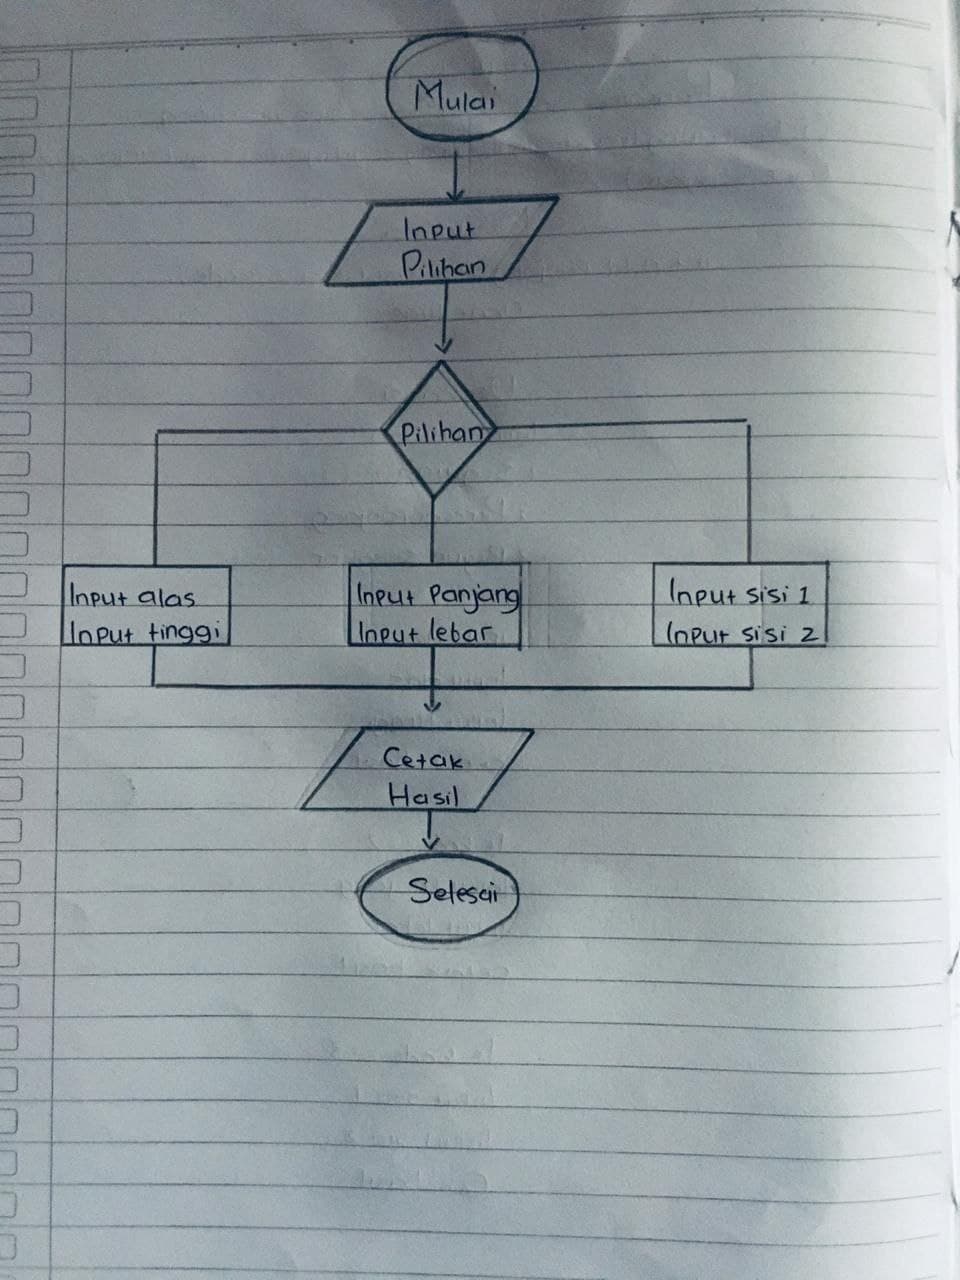 Mulai
Input
Pilihan
Pilihan
Input alas
Input tinggi
Input Panjang
Input lebar
Input sisi 1
Input sisi 2
Cetak
Hasil
Selesai